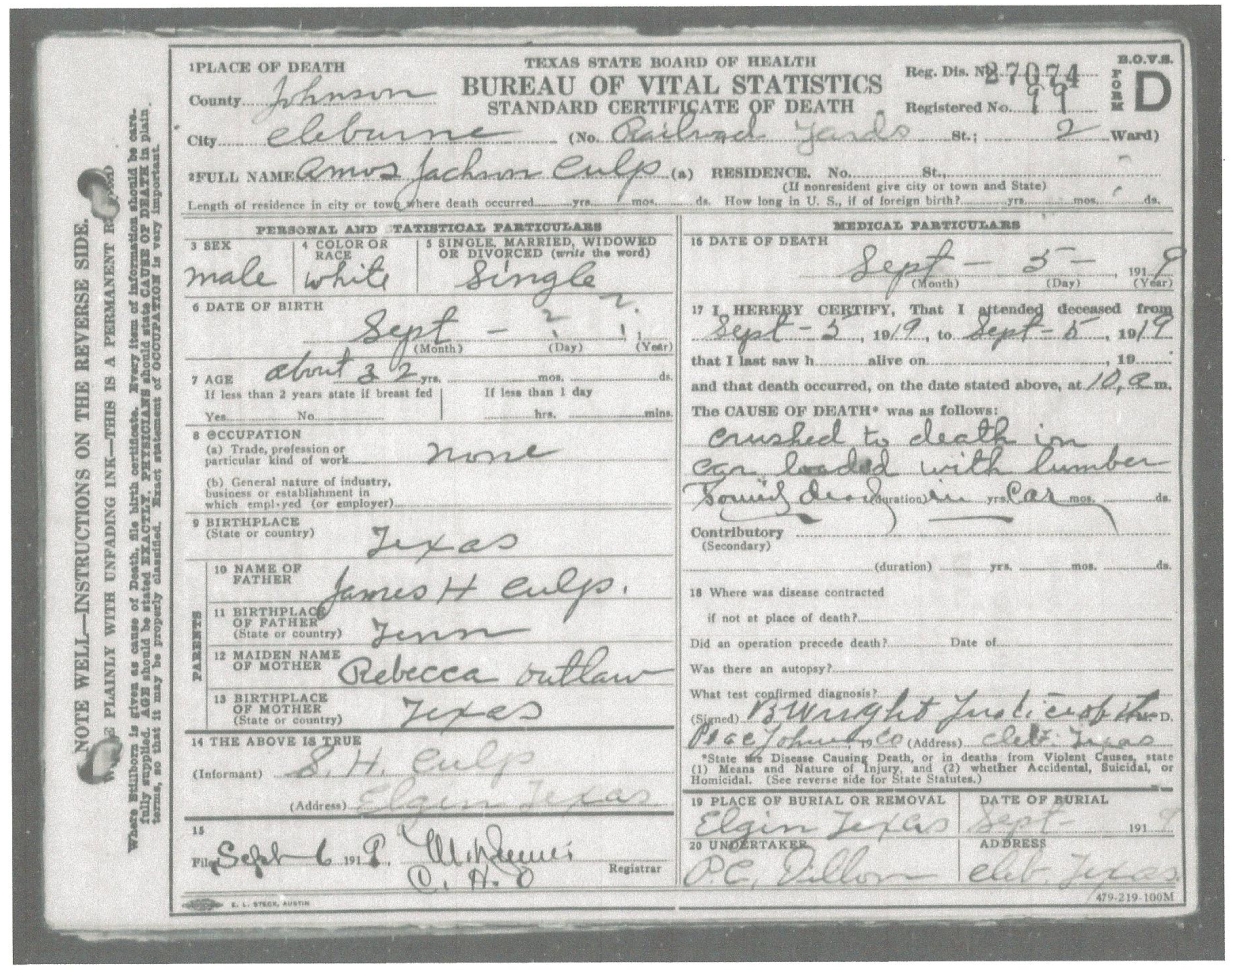 TEXAS STATE BOARD OF HEALTH
BUREAU OF VITAL STATISTICS
STANDARD CERTIFICATE OF DEATH
B.O.V.S.
FORM D
Reg. Dis. No. 27074
Registered No. 99
1 PLACE OF DEATH
County Johnson
City Cleburne (No. Railroad Yards St.; 2 Ward)
2 FULL NAME Amos Jackson Culp (a) RESIDENCE. No. St.,
(If nonresident give city or town and State)
Length of residence in city or town where death occurred yrs. mos. ds. How long in U. S., if of foreign birth? yrs. mos. ds.
PERSONAL AND TATISTICAL PARTICULARS
3 SEX
male
4 COLOR OR RACE
white
5 SINGLE, MARRIED, WIDOWED OR DIVORCED (write the word)
Single
6 DATE OF BIRTH
Sept - ? 1
(Month) (Day) (Year)
7 AGE about 32 yrs. mos. ds.
If less than 2 years state if breast fed
Yes No
If less than 1 day
hrs. mins.
8 OCCUPATION
(a) Trade, profession or
particular kind of work none
(b) General nature of industry,
business or establishment in
which empl-yed (or employer)
9 BIRTHPLACE
(State or country) Texas
PARENTS
10 NAME OF FATHER James H Culp.
11 BIRTHPLACE OF FATHER
(State or country) Tenn
12 MAIDEN NAME OF MOTHER Rebecca Outlaw
13 BIRTHPLACE OF MOTHER
(State or country) Texas
14 THE ABOVE IS TRUE
(Informant) S. H. Culp
(Address) Elgin Texas
15
Filed Sept 6 1919.
C. H. O
Registrar
MEDICAL PARTICULARS
16 DATE OF DEATH
Sept - 5 - 1919
(Month) (Day) (Year)
17 I HEREBY CERTIFY, That I attended deceased from
Sept - 5, 1919, to Sept - 5, 1919
that I last saw h alive on , 19
and that death occurred, on the date stated above, at 10, a m.
The CAUSE OF DEATH* was as follows:
crushed to death in
car loaded with lumber
Found dead (duration) in yrs. Car mos. ds.
Contributory
(Secondary)
(duration) yrs. mos. ds.
18 Where was disease contracted
if not at place of death?
Did an operation precede death? Date of
Was there an autopsy?
What test confirmed diagnosis?
(Signed) B Wright Justice of the M. D.
Peace John , 19 Co (Address) Cleb. Texas
*State the Disease Causing Death, or in deaths from Violent Causes, state
(1) Means and Nature of Injury, and (2) whether Accidental, Suicidal, or
Homicidal. (See reverse side for State Statutes.)
19 PLACE OF BURIAL OR REMOVAL
Elgin Texas
DATE OF BURIAL
Sept- 1919
20 UNDERTAKER
P.C. Dillon
ADDRESS
Cleb. Texas
479-219-100M
E. L. STECK, AUSTIN
NOTE WELL—INSTRUCTIONS ON THE REVERSE SIDE.
PLAINLY WITH UNFADING INK—THIS IS A PERMANENT
Where Stillborn is given as cause of Death, file birth certificate. Every item of information should be care-
fully supplied. AGE should be stated EXACTLY. PHYSICIANS should state CAUSE OF DEATH in plain
terms, so that it may be properly classified. Exact statement of OCCUPATION is very important.